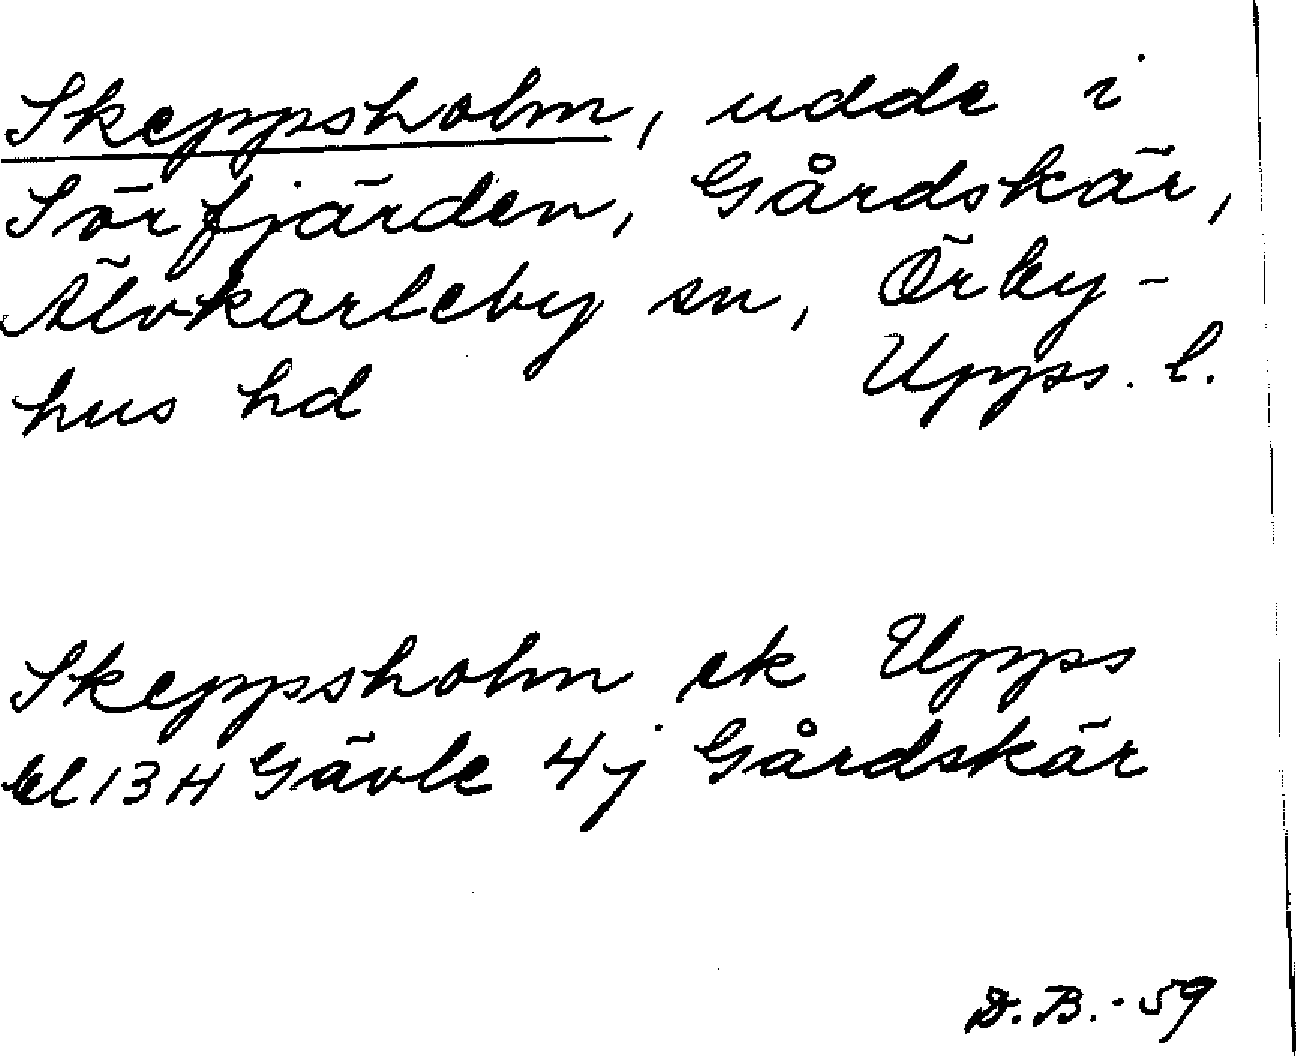 Skeppsholm, udde i
Sörfjärden, Gårdskär,
Älvkarleby sn, Örby-
hus hd Upps. l.
Skeppsholm ek Upps
bl 13 H Gävle 4 j Gårdskär
D.B.-59